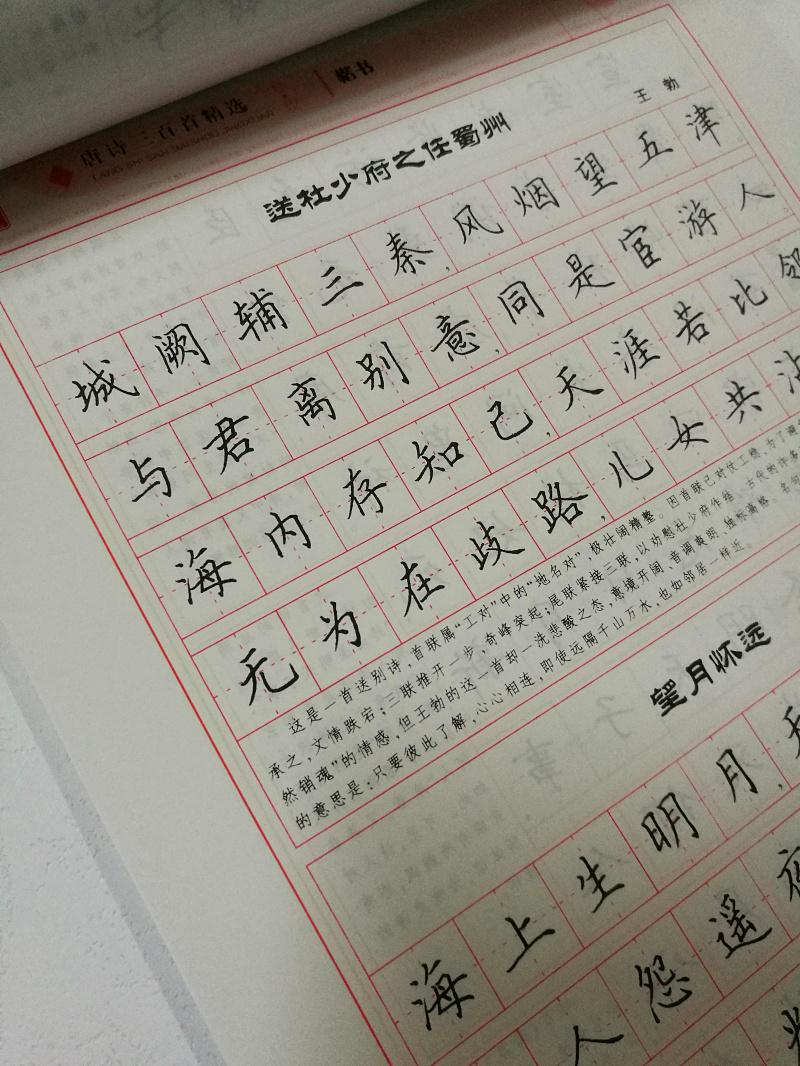 唐诗三百首精选
楷书
送杜少府之任蜀州
王勃
城阙辅三秦,风烟望五津。
与君离别意,同是宦游人。
海内存知己,天涯若比邻
无为在歧路,儿女共沾
这是一首送别诗,首联属“工对”中的“地名对”,极壮阔精整。因首联已对仗工稳,为了避
承之,文情跌宕;三联推开一步,奇峰突起;尾联紧接三联,以劝慰杜少府作结。古代的许多
然销魂”的情感,但王勃的这一首却一洗悲酸之态,意境开阔、音调爽朗、独标高格。名句
的意思是:只要彼此了解,心心相连,即使远隔千山万水,也如邻居一样近。
望月怀远
海上生明月,天
人怨遥夜